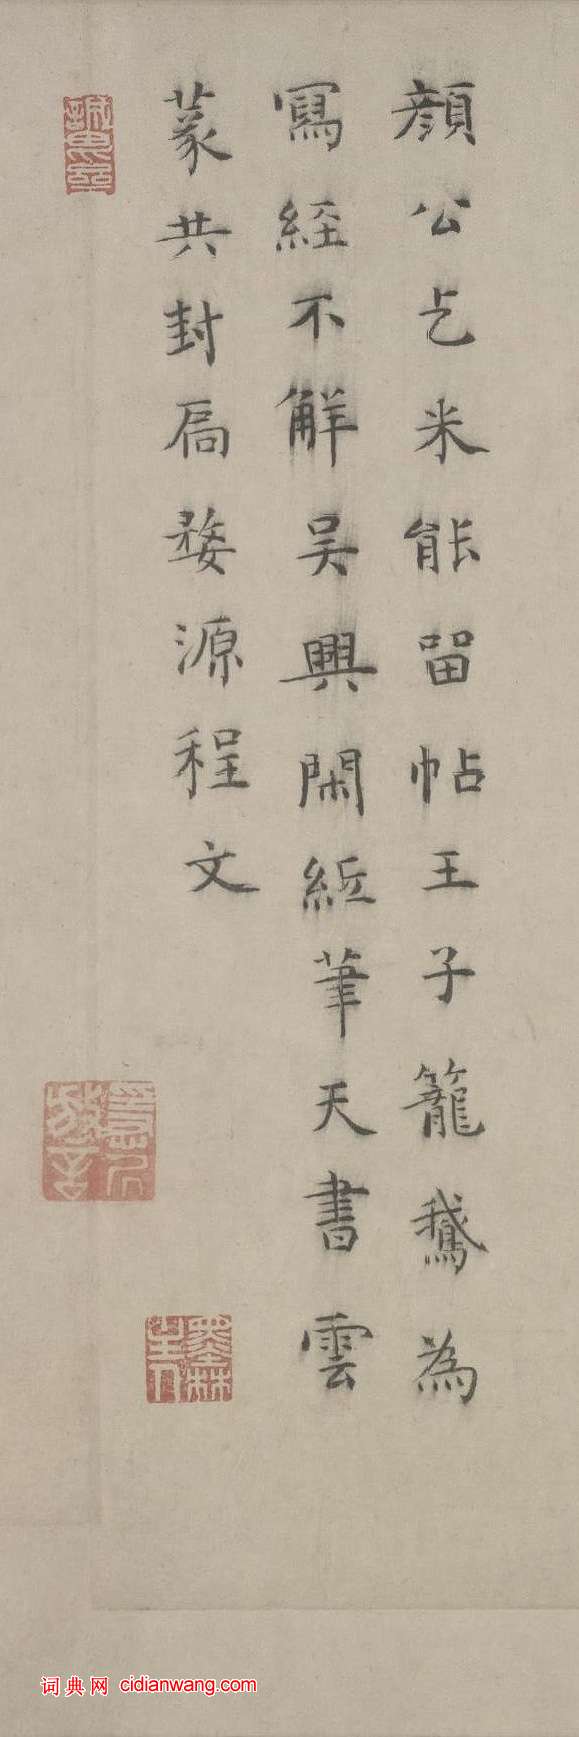 顏公乞米能留帖王子籠鵝為
寫經不解吳興閑紙筆天書雲
篆共封扃婺源程文
词典网 cidianwang.com